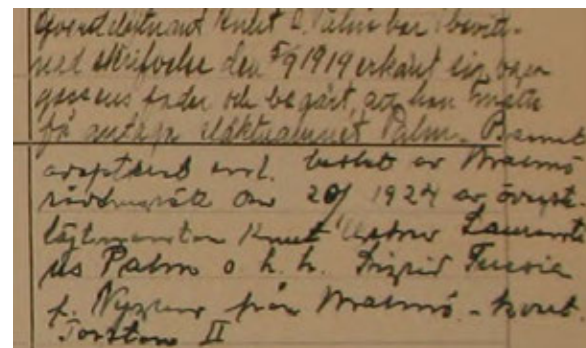 Överstelöjtnant Knut L. Palm har i bevitt-
nad skrifvelse den 5/9 1919 erkänt sig vara
gossens fader och begärt, att han måtte
få antaga släktnamnet Palm. Barnet
adopterat enl. beslut av Malmö
rådhusrätt den 20/ 1924 av överste
löjtnanten Knut Laurent
us Palm o. h. h. Sigrid
f. från Malmö.
Torsten II